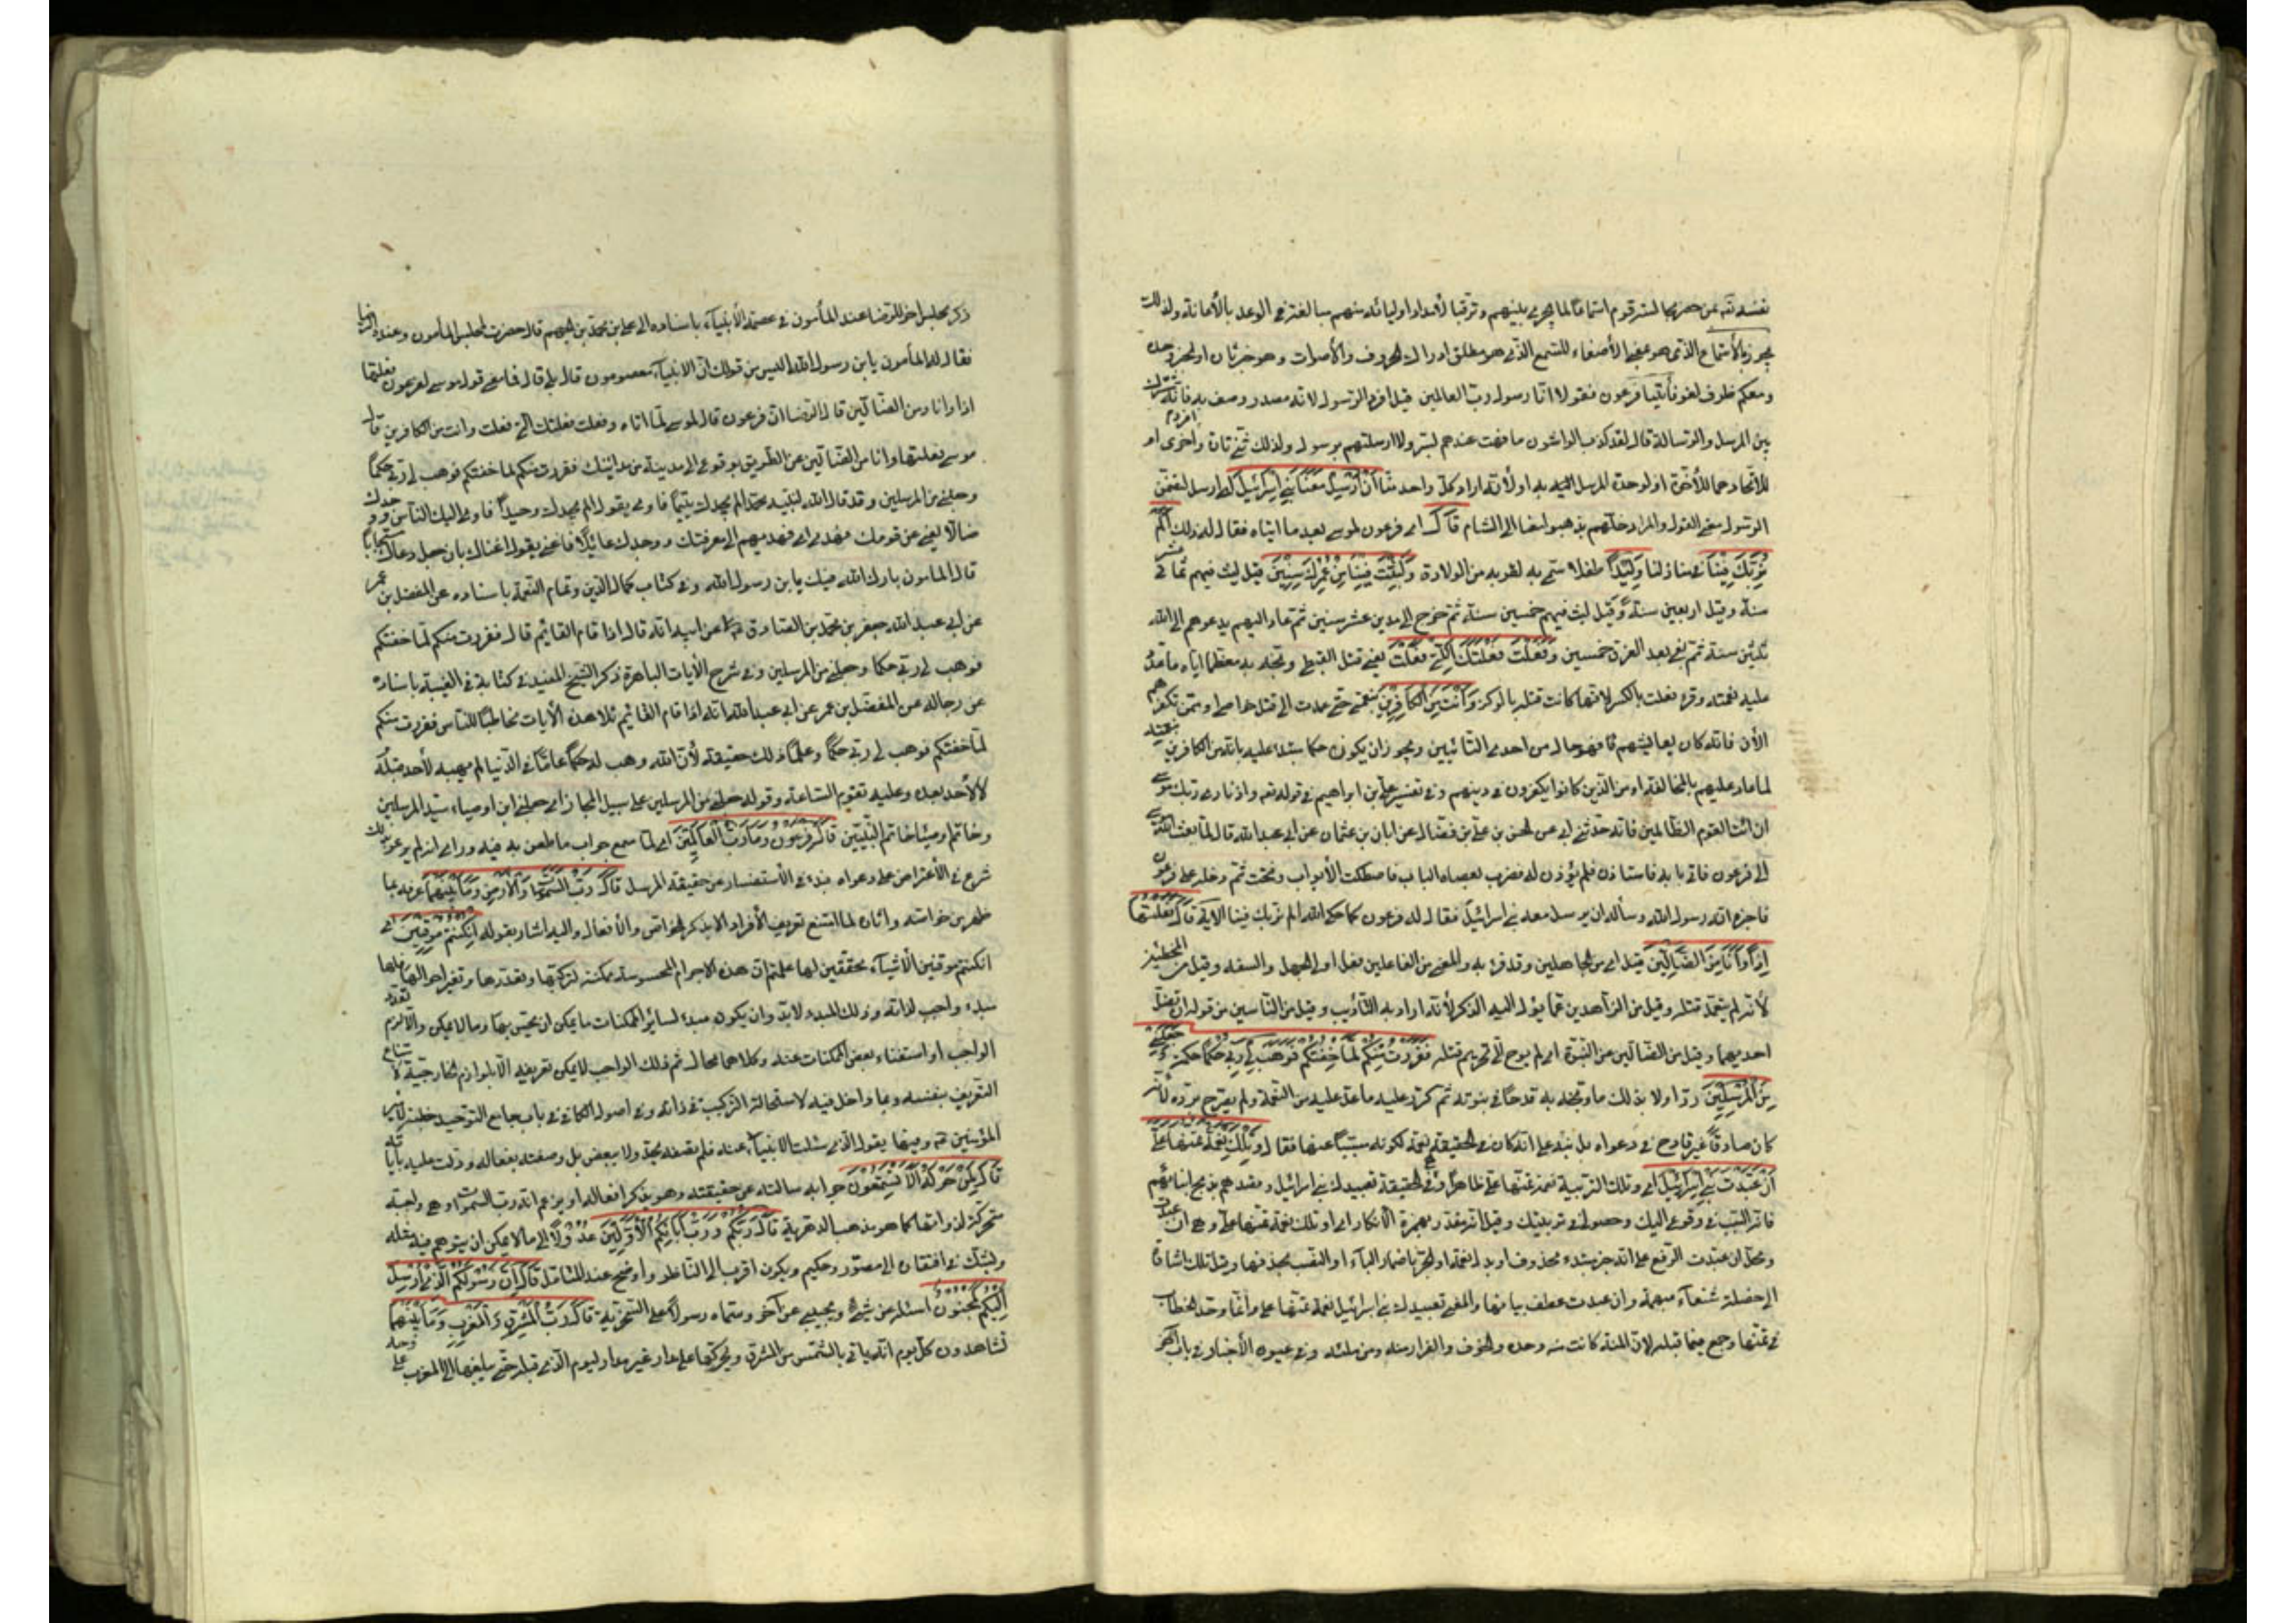 نفسه تعـ بمن حضر مجادلة قوم استماعا لما يجري بينهم وترقبا لأمداد اوليائه منهم مبالغة في الوعد بالأعانة ولذلك
تجوز بالأستماع الذي هو بمعنى الأصغاء للسمع الذي هو مطلق ادراك الحروف والأصوات وهو خبر ثان او الخبر وحده
ومعكم ظرف لغو فأتيا فرعون فقولا انا رسول رب العالمين قيل افرد الرسول لانه مصدر وصف به فانه مشترك
بين المرسل والرسالة قال لقد كذب الواشون ما فهت عندهم بسر ولا ارسلتهم برسول ولذلك ثنى تارة وافرد اخرى او
للاتحادهما للأخوة او لوحدة المرسل اليه او لأنه اراد كل واحد منا أن أرسل معنا بني إسرائيل اي ارسل لتضمن
الرسول معنى القول والمراد خلهم يذهبوا معنا الى الشام قال اي فرعون لموسى بعد ما اتياه فقال له ذلك ألم
نربك فينا في منازلنا وليدا طفلا سمي به لقربه من الولادة ولبثت فينا من عمرك سنين قيل لبث فيهم ثماني عشر
سنة وقيل اربعين سنة وقيل لبث فيهم خمسين سنة ثم خرج الى مدين عشر سنين ثم عاد اليهم يدعوهم الى الله
ثلثين سنة ثم بقي بعد الغرق خمسين وفعلت فعلتك التي فعلت يعني قتل القبطي وبخه به معظما اياه ما عدد
عليه نعمته وقرء فعلت بالكسر لانها كانت قتله بالوكز وأنت من الكافرين بنعمتي حتى عمدت الى قتل خواصي او ممن تكفرهم
الأن فانه كان يعايشهم فهو حال من احدى التائين ويجوز ان يكون حكما مبتدء عليه بانه من الكافرين بنعمته
لما عاد عليهم بالمخالفة او من الذين كانوا يكفرون في دينهم وفي تفسير علي بن ابراهيم في قوله تعـ واذ نادى ربك موسى
ان ائت القوم الظالمين فانه حدثني ابي عن الحسن بن علي بن فضال عن ابان بن عثمان عن ابي عبد الله قال لما بعث الله موسى
الى فرعون فاتى بابه فاستاذن فلم يؤذن له فضرب بعصاه الباب فاصطكت الأبواب وفتحت ثم دخل على فرعون
فاخبره انه رسول الله وسأله ان يرسل معه بني اسرائيل فقال له فرعون كما حكى الله الم نربك فينا الاية قال فعلتها
إذا وأنا من الضالين قيل اي من الجاهلين وقد قرء به والمعنى من الفاعلين فعل اولي الجهل والسفه وقيل من المخطئين
لأنه لم يتعمد قتله وقيل من الذاهلين عما يؤل اليه الوكز لأنه اراد به التأديب وقيل من الناسين من قوله ان تضل
احديهما وقيل من الضالين عن النبوة اي لم يوح الي تحريم قتله ففررت منكم لما خفتكم فوهب لي ربي حكما حكمة وجعلني
من المرسلين رد اولا بذلك ما وبخه به قدحا في نبوته ثم كر عليه ما عد عليه من النعمة ولم يصرح برده لأنه
كان صادقا غير قادح في دعواه بل نبه على انه كان في الحقيقة نقمة لكونه مسببا عنها فقال وتلك نعمة تمنها علي
أن عبدت بني إسرائيل اي وتلك التربية نعمة تمنها علي ظاهرا وهي في الحقيقة تعبيدك بني اسرائيل وقصدهم بذبح ابنائهم
فانه السبب في وقوعي اليك وحصولي في تربيتك وقيل انه مقدر بهمزة الانكار اي او تلك نعمة تمنها علي وهي ان عبدت
ومحل ان عبدت الرفع على انه خبر مبتدء محذوف او بدل نعمة او الجر باضمار الباء او النصب بحذفها وقيل تلك اشارة
الى خصلة شنعاء مبهمة وان عبدت عطف بيانها والمعنى تعبيدك بني اسرائيل نعمة تمنها علي وانما وحد الخطاب
في تمنها وجمع فيما قبله لان المنة كانت منه وحده والخوف والفرار منه ومن ملئه وفي عيون الأخبار في باب اخر
ذكر مجلس اخر للرضا عند المأمون في عصمة الأنبياء باسناده الى علي بن محمد بن الجهم قال حضرت مجلس المأمون وعنده الرضا
فقال له المأمون يابن رسول الله اليس من قولك ان الانبياء معصومون قال بلى قال فما معنى قول موسى لفرعون فعلتها
اذا وانا من الضالين قال الرضا ان فرعون قال لموسى لما اتاه وفعلت فعلتك التي فعلت وانت من الكافرين قال
موسى فعلتها وانا من الضالين عن الطريق بوقوعي الى مدينة من مدائنك ففررت منكم لما خفتكم فوهب لي ربي حكما
وجعلني من المرسلين وقد قال الله لنبيه محمد الم يجدك يتيما فاوى يقول الم يجدك وحيدا فاوى اليك الناس ووجدك
ضالا يعني عن قومك فهدى اي فهديهم الى معرفتك ووجدك عائلا فاغنى يقول اغناك بان جعل دعاك مستجابا
قال المامون بارك الله فيك يابن رسول الله وفي كتاب كمال الدين وتمام النعمة باسناده عن المفضل بن عمر
عن ابي عبد الله جعفر بن محمد بن الصادق عن ابيه انه قال اذا قام القائم قال ففررت منكم لما خفتكم
فوهب لي ربي حكما وجعلني من المرسلين وفي شرح الأيات الباهرة ذكر الشيخ المفيد في كتابه في الغيبة باسناده
عن رجاله عن المفضل بن عمر عن ابي عبد الله انه اذا قام القائم تلا هذه الأيات مخاطبا للناس ففررت منكم
لما خفتكم فوهب لي ربي حكما وعلما ذلك حقيقة لأن الله وهب له حكما عاما في الدنيا لم يهبه لأحد قبله
لا لأحد بعده وعليه تقوم الساعة وقوله جعلني من المرسلين على سبيل المجاز اي جعلني من اوصياء سيد المرسلين
وخاتم اوصياء خاتم النبيين قال فرعون وما رب العالمين اي لما سمع جواب ما طعن به فيه وراى انه لم يرعو بذلك
شرع في الأعتراض على دعواه فبدء في الأستفسار عن حقيقة المرسل قال رب السموات والأرض وما بينهما عرفه بما
ظهر من خواصه واثاره لما امتنع تعريف الأفراد الا بذكر الخواص والأفعال واليه اشار بقوله إن كنتم موقنين اي
ان كنتم موقنين الأشياء محققين لها علمتم ان هذه الاجرام المحسوسة ممكنة لتركبها وتعددها وتغير احوالها فلها
مبدء واجب لذاته وذلك المبدء لابد وان يكون مبدء لسائر الممكنات ما يمكن ان يحس بها وما لا يمكن والا لزم تعدد
الواجب او استغناء بعض الممكنات عنه وكلاهما محال ثم ذلك الواجب لا يمكن تعريفه الا بلوازمه الخارجية لامتناع
التعريف بنفسه وبما داخل فيه لاستحالة التركيب في ذاته وفي اصول الكافي في باب جامع التوحيد خطبة لامير
المؤمنين عـ وفيها يقول الذي سئلت الانبياء عنه فلم تصفه بحد ولا ببعض بل وصفته بفعاله ودلت عليه باياته
قال لمن حوله ألا تستمعون جوابه سالته عن حقيقته وهو يذكر افعاله او يزعم انه رب السموات وهي واجبة
متحركة لذواتها كما هو مذهب الدهرية قال ربكم ورب آبائكم الأولين عدولا الى ما لا يمكن ان يتوهم فيه مثله
ويشك في افتقاره الى مصور وحكيم ويكون اقرب الى الناظر واوضح عند المتامل قال إن رسولكم الذي أرسل
إليكم لمجنون اسئله عن شيء ويجيبني عن آخر وسماه رسولا على السخرية قال رب المشرق والمغرب وما بينهما
تشاهدون كل يوم انه ياتي بالشمس من المشرق ويحركها على مدار غير مدار اليوم الذي قبله حتى يبلغها الى المغرب على وجه